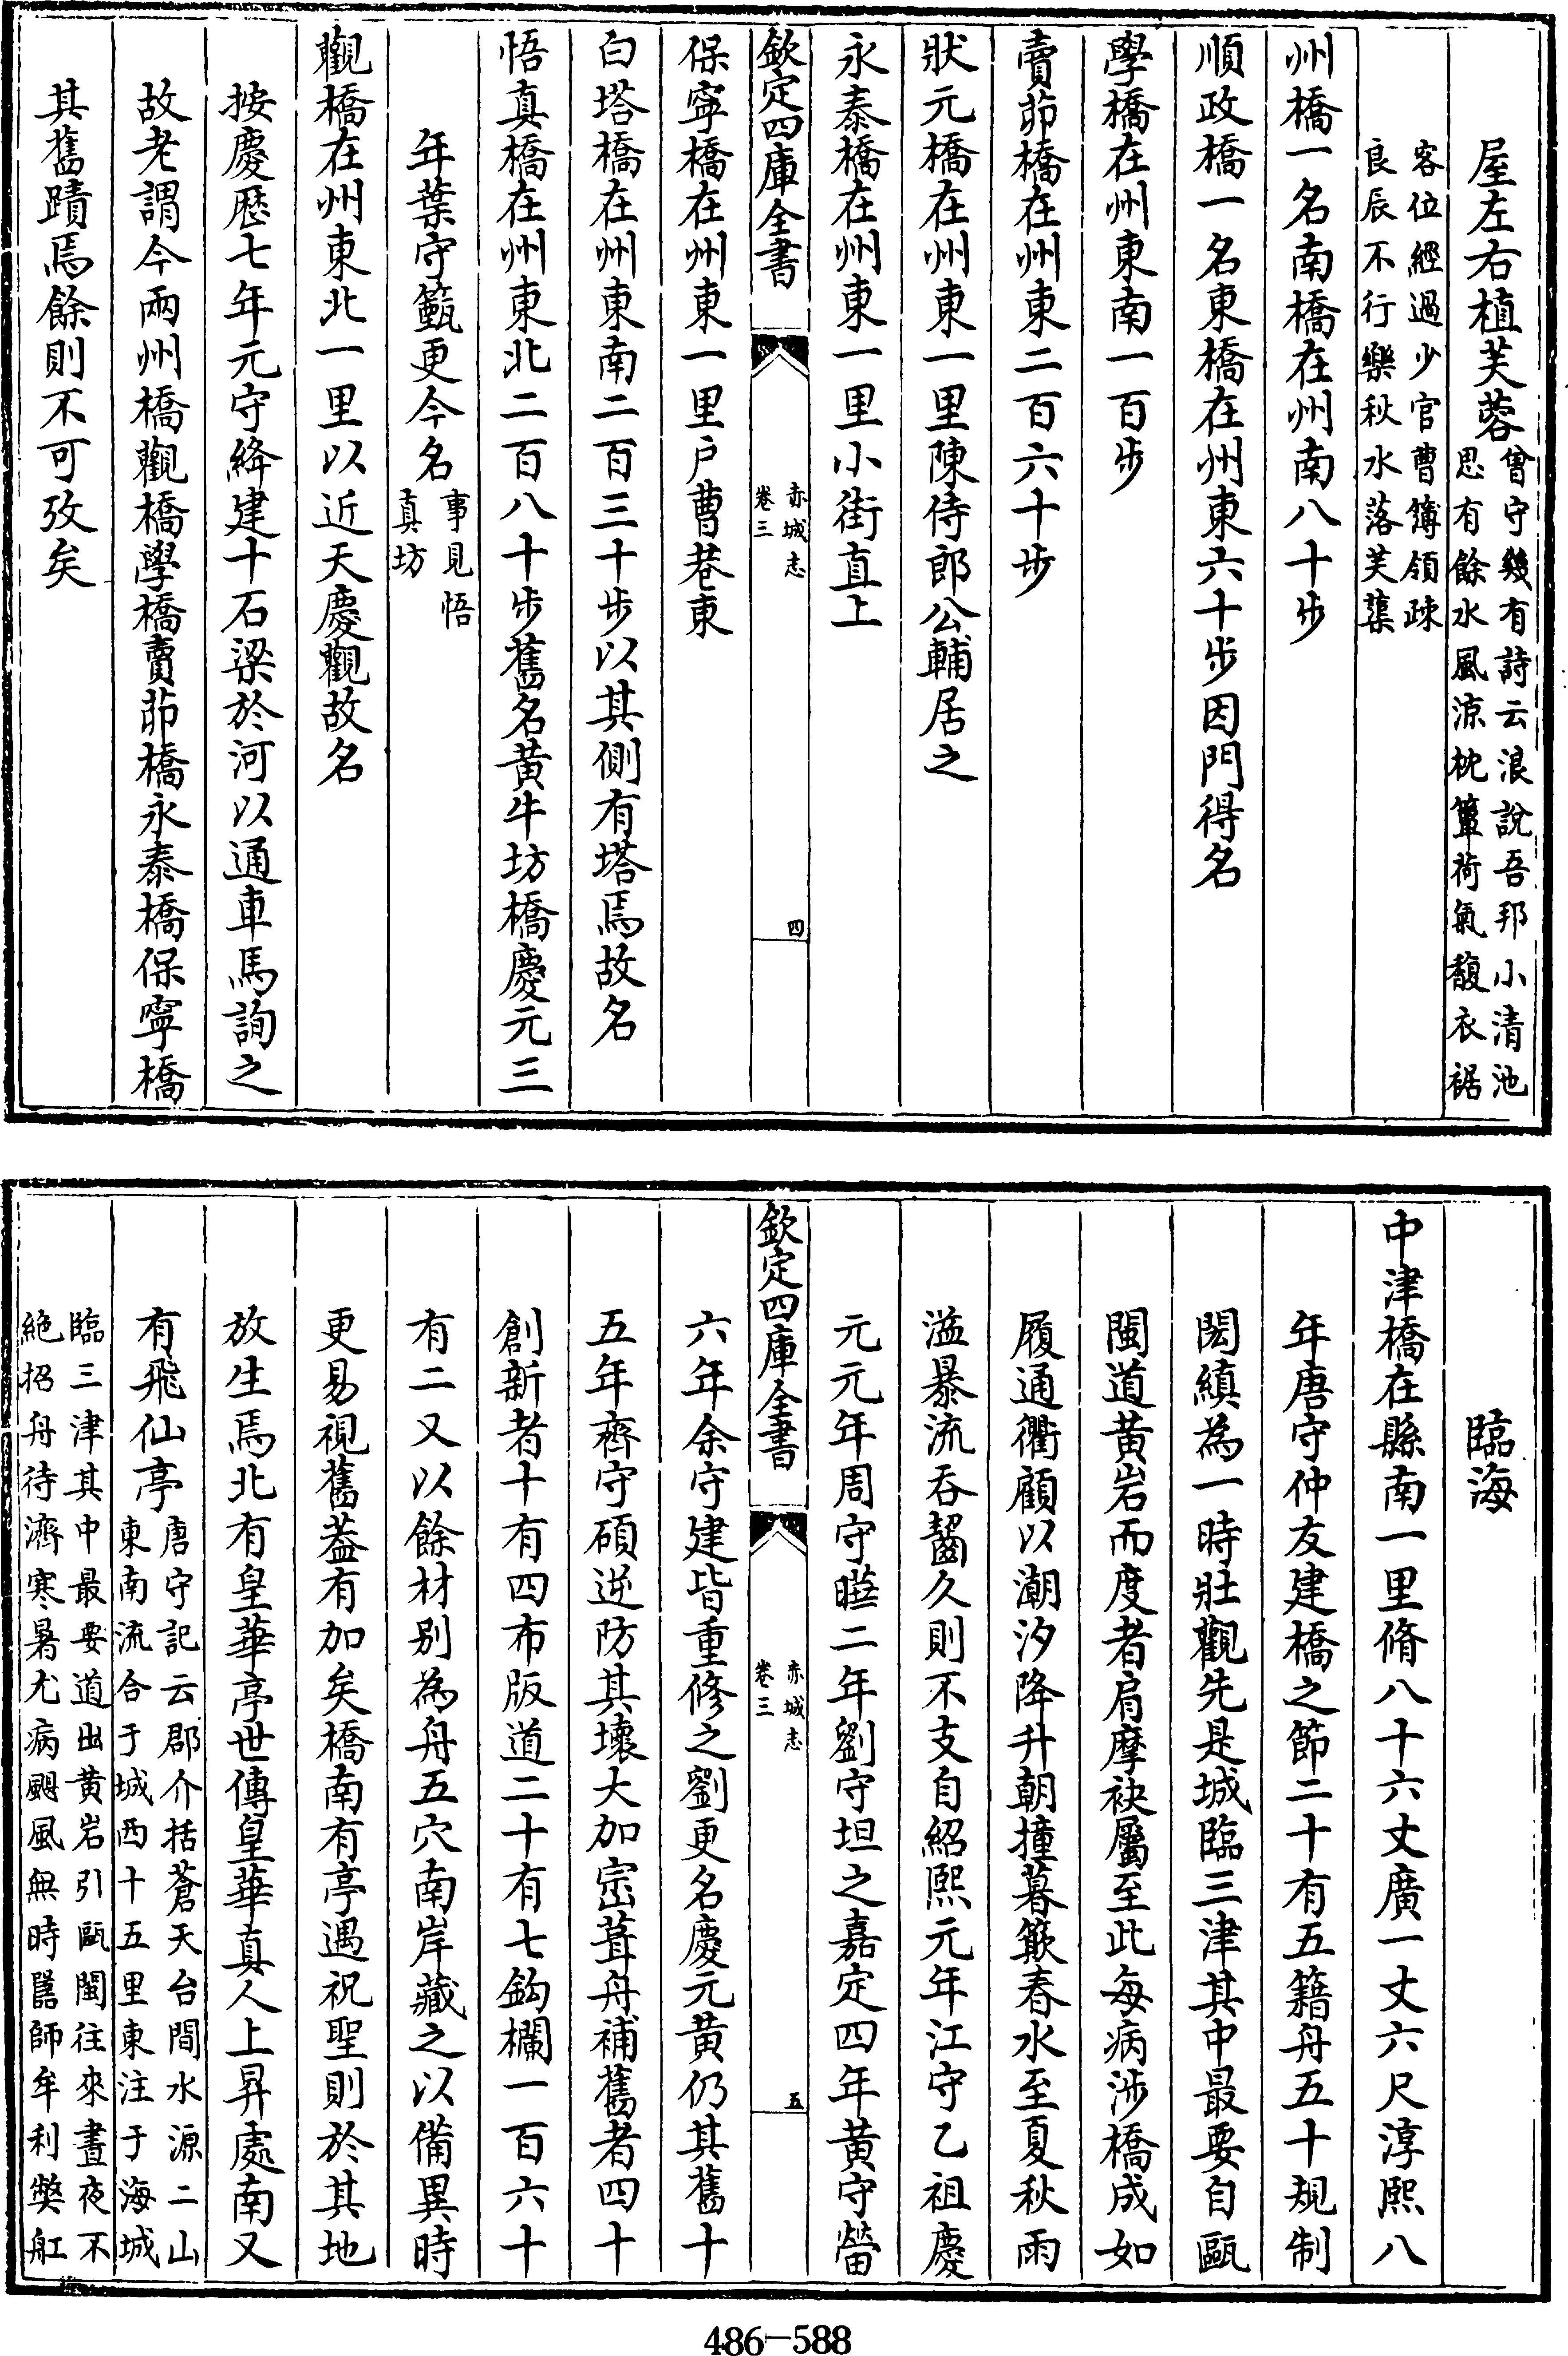 屋左右植芙蓉曾守幾有詩云浪說吾邦小清池思有餘水風涼枕簟荷氣馥衣裾
客位經過少官曹簿領疎良辰不行樂秋水落芙蕖
州橋一名南橋在州南八十步
順政橋一名東橋在州東六十步因門得名
學橋在州東南一百步
賣茆橋在州東二百六十步
狀元橋在州東一里陳侍郎公輔居之
永泰橋在州東一里小街直上
欽定四庫全書 赤城志 卷三 四
保寧橋在州東一里戶曹巷東
白塔橋在州東南二百三十步以其側有塔焉故名
悟真橋在州東北二百八十步舊名黃牛坊橋慶元三
年葉守籈更今名事見悟真坊
觀橋在州東北一里以近天慶觀故名
按慶歷七年元守絳建十石梁於河以通車馬詢之
故老謂今兩州橋觀橋學橋賣茆橋永泰橋保寧橋
其舊蹟焉餘則不可攷矣
臨海
中津橋在縣南一里脩八十六丈廣一丈六尺淳熙八
年唐守仲友建橋之節二十有五籍舟五十規制
閎縝為一時壯觀先是城臨三津其中最要自甌
閩道黃岩而度者肩摩袂屬至此每病涉橋成如
履通衢顧以潮汐降升朝撞暮簸春水至夏秋雨
溢暴流吞齧久則不支自紹熙元年江守乙祖慶
元元年周守曄二年劉守坦之嘉定四年黃守㽦
欽定四庫全書 赤城志 卷三 五
六年余守建皆重修之劉更名慶元黃仍其舊十
五年齊守碩逆防其壞大加窋葺舟補舊者四十
創新者十有四布版道二十有七鈎欄一百六十
有二又以餘材別為舟五穴南岸藏之以備異時
更易視舊葢有加矣橋南有亭遇祝聖則於其地
放生焉北有皇華亭世傳皇華真人上昇處南又
有飛仙亭唐守記云郡介括蒼天台間水源二山東南流合于城西十五里東注于海城
臨三津其中最要道出黃岩引甌閩往來晝夜不絶招舟待濟寒暑尤病颶風無時嚚師牟利獘舡
486—588